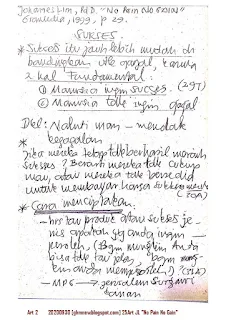 Johannes Lim, Ph.D. "No Pain No GAIN"
Gramedia, 1999, p 29.
SUKSES.
* Sukses itu jauh lebih mudah di
bandingkan dg gagal, karena
2 hal Fundamental:
① Manusia ingin SUKSES. (29T)
② Manusia tdk ingin gagal
Naluri man - mendak
kegagalan
* Jika mereka tetap tdk berhasil meraih
sukses? Berarti mereka tdk cukup
mau, atau mereka tdk bersedia
untuk membayar harga sukses
(30A)
* Cara menciptakan.
- hrs tau produk atau sukses je-
nis apakah yg anda ingin
peroleh, (Bgm mungkin Anda
bisa tdk tau jelas, bgm mung-
kin anda memperoleh)?
- MPG →
taman
Art 2 20200930 [glmnmw.blogspot.com] 25Art JL "No Pain No Gain"